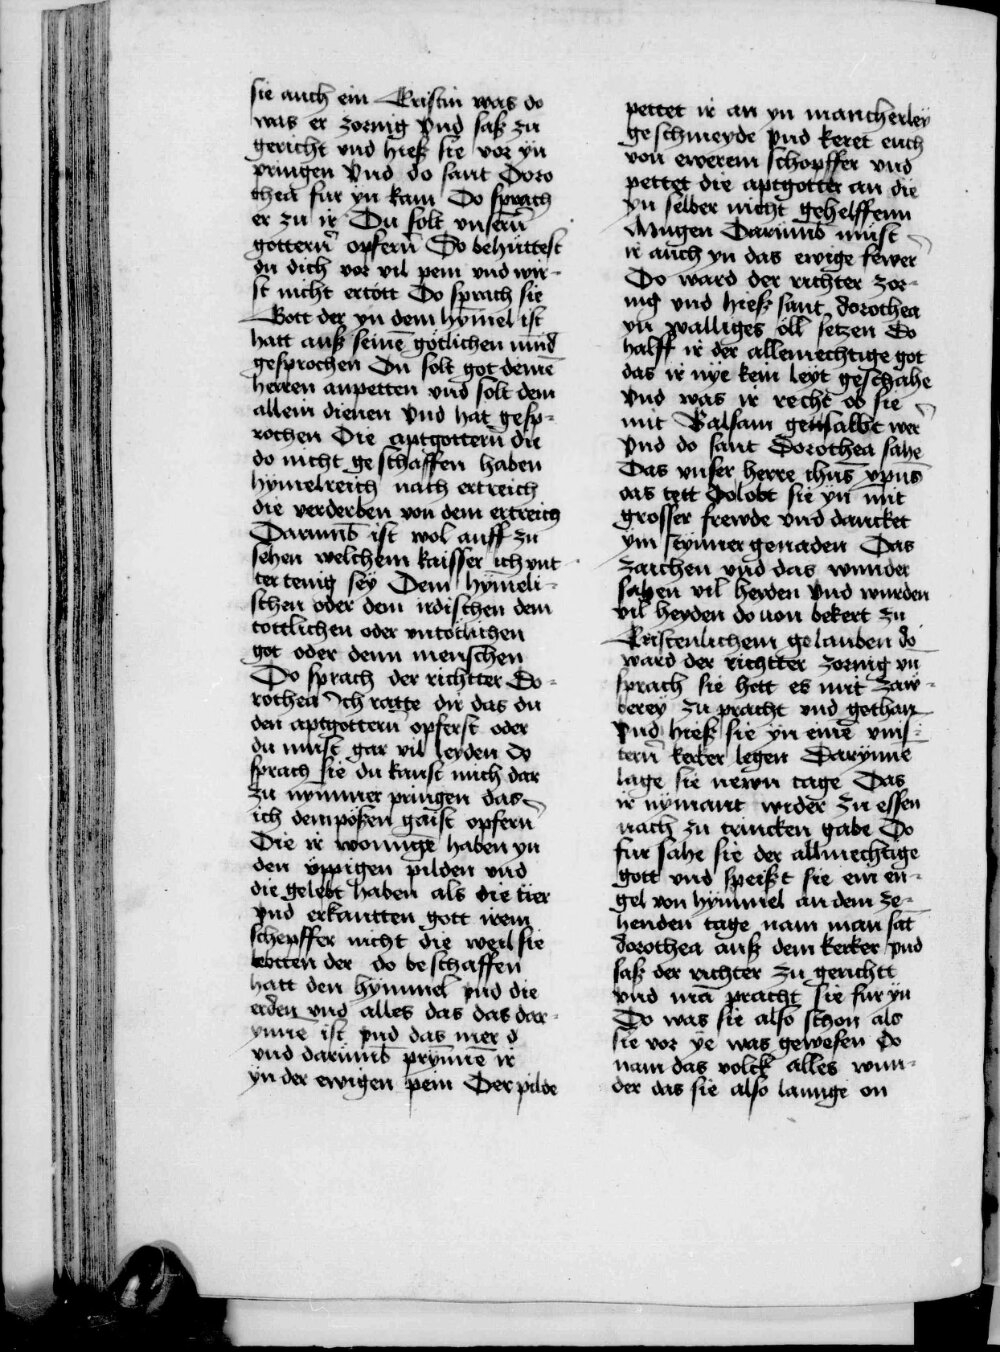 sie auch ein Cristin was do
was er zornig vnd saß zu
gericht vnd hieß sie vor yn
pringen vnd do sant Doro
thea fur yn kam Do sprach
er zu ir Du solt vnsern̄
gottern̄ opfern̄ So behuttest
du dich vor vil pein vnd wir-
st nicht ertott Do sprach sie
Gott der yn dem hymel ist
hatt auß seinē gotlichen mūd
gesprochen Du solt got deinē
herren anpetten vnd solt dem
allein dienen vnd hat gesp-
rochen Die aptgottern die
do nicht geschaffen haben
hymelreich nach ertreich
die verderben von dem ertreich
Darumb ist wol auff zu
sehen welchem kaisser ich vnt
ter tenig sey Dem hymeli-
schen oder dem irdischen dem
tottlichen oder vntotlichen
got oder denn menschen
Do sprach der richtter Do-
rothea ich ratte dir das du
den aptgottern opferst oder
du must gar vil leyden Do
sprach sie du kanst mich dar
zu nymmer pringen das
ich dem poßen gaist opfern̄
Die ir wonunge haben yn
den vppigen pilden vnd
die gelebt haben als die tier
vnd erkantten gott irem
schepffer nicht die weil sie
lebtten der do beschaffen
hatt den hymmel vnd die
erden vnd alles das das dar-
ynnē ist vnd das mer d
vnd darumb prynnē ir
yn der ewigen pein Der pilde
pettet ir an yn mancherley
geschmeyde vnd keret euch
von ewerem schopffer vnd
pettet die aptgotter an die
yn selber nicht gehelffenn
Mugen Darumb must
ir auch yn das ewige fewer
Do ward der richter zor-
nig vnd hieß sant dorothea
yn walliges oll setzen Do
halff ir der allmechtige got
das ir nye kein leyt geschahe
vnd was ir recht ob sie
mit Balsam gesalbt wer
vnd do sant Dorothea sahe
Das vnser herre ihūs xpūs
das tett Do lobt sie yn mit
grosser frewde vnd dancket
ym seynner genaden Das
zaichen vnd das wunder
sahen vil heyden vnd wurden
vil heyden do von bekert zu
Cristenlichem gelauben do
ward der richtter zornig vn̄
sprach sie hett es mit zaw-
berey zu pracht vnd gethan
vnd hieß sie yn einē vins-
tern̄ kerker legen Darynne
lage sie newn tage Das
ir nymant wider zu essen
nach zu trincken gabe Do
fur sahe sie der allmechtige
gott vnd speißt sie ein en-
gel von hymmel an dem ze-
henden tage nam man sāt
dorothea auß dem kerker vnd
saß der richter zu gerichtt
vnd mā pracht sie fur yn
Do was sie also schon als
sie vor ye was gewesen Do
nam das volck alles wun-
der das sie also lannge on